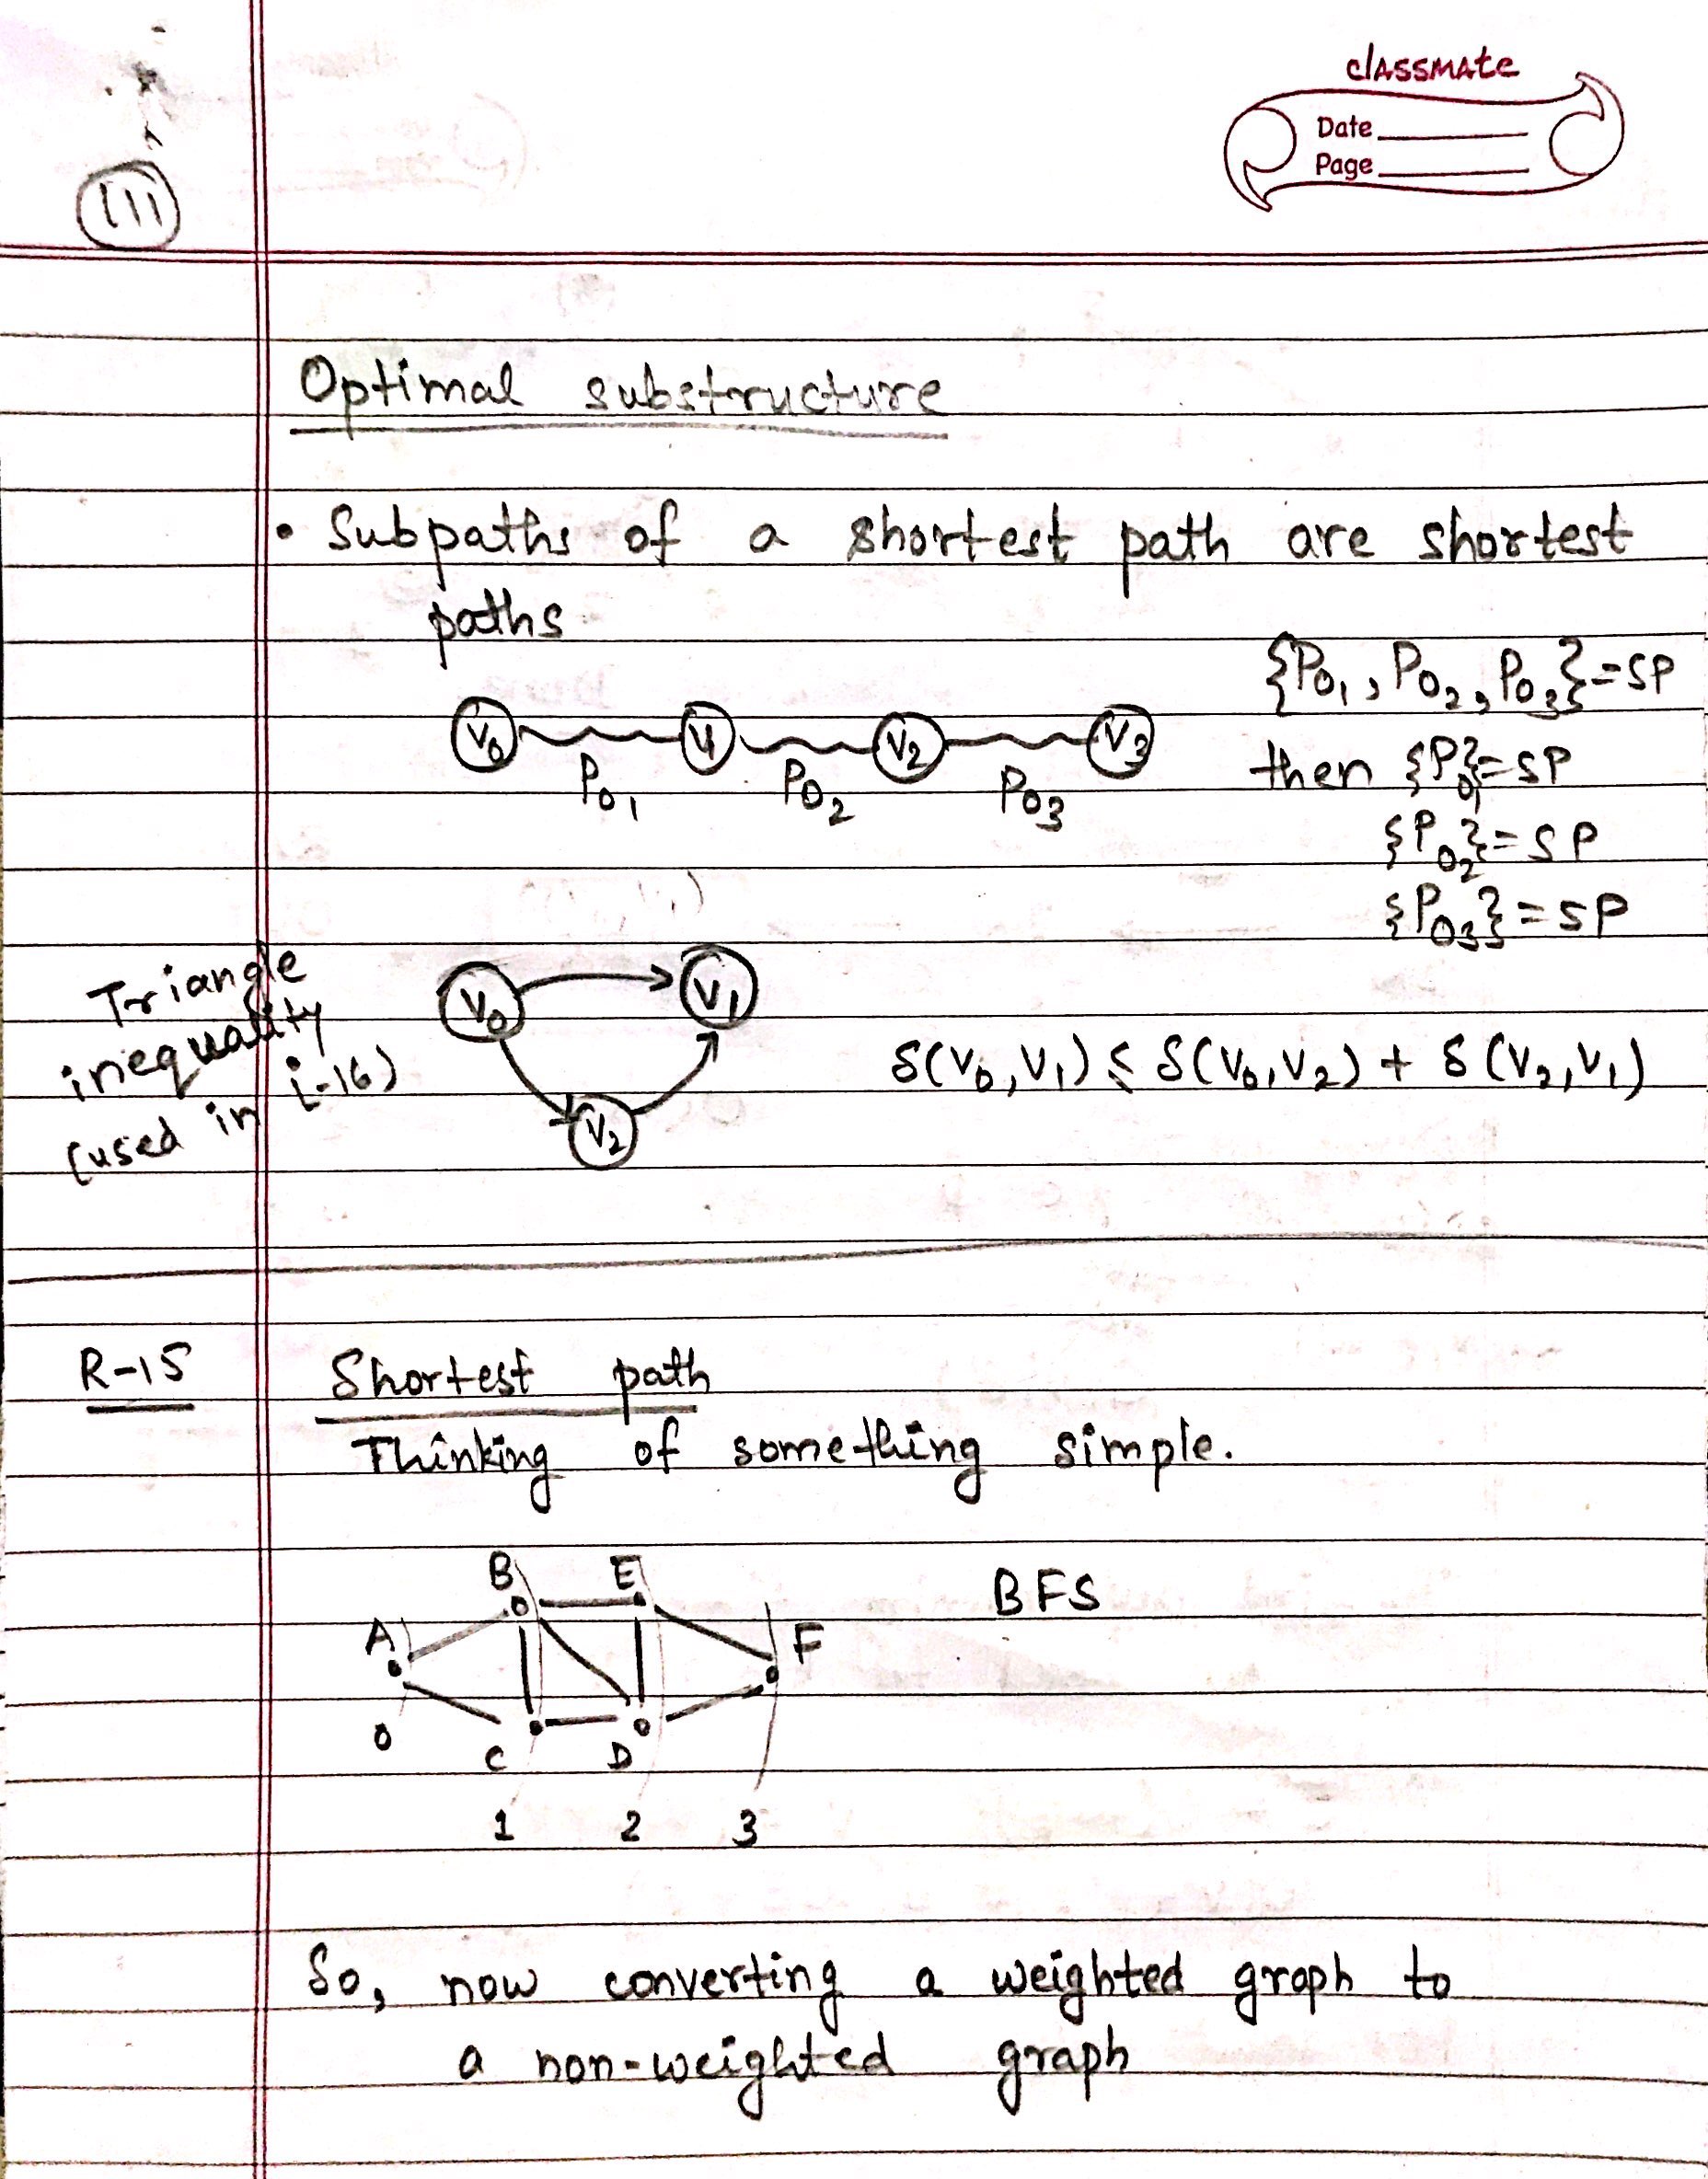 classmate
Date
Page
111
Optimal substructure
• Subpaths of a shortest path are shortest
paths
{P01, P02, P03} = SP
V0 V1 V2 V3
then {P01} = SP
P01 P02 P03
{P02} = SP
{P03} = SP
Triangle
inequality
(used in L-16)
V0 V1
V2
δ(V0,V1) ≤ δ(V0,V2) + δ(V2,V1)
R-15
Shortest path
Thinking of something simple.
B E
BFS
A F
0 C D
1 2 3
So, now converting a weighted graph to
a non-weighted graph